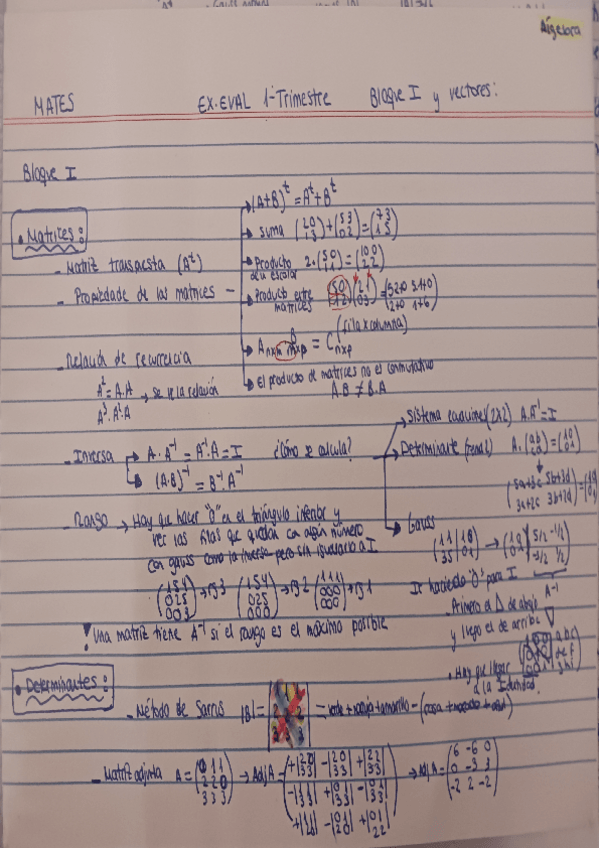 Álgebra
MATES EX. EVAL 1º Trimestre Bloque I y vectores:
Bloque I
• Matrices:
- Matriz transpuesta (Aᵗ)
- Propiedade de las matrices -
→ (A+B)ᵗ = Aᵗ + Bᵗ
→ suma (2 0 / 1 3) + (5 3 / 0 2) = (7 3 / 1 5)
→ Producto de un escalar 2 · (5 0 / 1 1) = (10 0 / 2 2)
→ Producto entre matrices (5 0 / 1 2) (2 1 / 0 3) =
→ Aₙₓₘ Bₘₓₚ = Cₙₓₚ (fila x columna)
→ El producto de matrices no es conmutativo
A.B ≠ B.A
- Relación de recurrencia
A² = A.A → se ve la relación
A³ = A².A
- Inversa → A · A⁻¹ = A⁻¹ · A = I ¿Cómo se calcula?
→ (A·B)⁻¹ = B⁻¹ A⁻¹
→ Sistema ecuaciones (2x2) A.A⁻¹ = I
→ Determinante A. (a b / c d) = (1 0 / 0 1)
(5a+3c 5b+3d / 3a+2c 3b+2d) =
→ Gauss
(1 1 | 1 0 / 3 5 | 0 1) → (1 0 | 5/2 -1/2 / 0 1 | -3/2 1/2)
Ir haciendo "0" para I A⁻¹
- Primero el Δ de abajo
y luego el de arriba ∇
• Hay que llegar
a la Identidad.
- Rango → Hay que hacer "0" en el triángulo inferior y
ver las filas que quedan con algún número
con gauss como la inversa pero sin igualarlo a I
(1 5 4 / 0 2 5 / 0 0 3) → rg 3 (1 5 4 / 0 2 5 / 0 0 0) → rg 2 (1 1 1 / 0 0 0 / 0 0 0) → rg 1
! Una matriz tiene A⁻¹ si el rango es el máximo posible
• Determinantes:
- Método de Sarrus |B| = = verde + naranja + amarillo - (rosa + morado + azul)
- Matriz adjunta A = (0 1 1 / 2 2 0 / 3 3 3) → Adj A = → Adj A = (6 -6 0 / 0 -3 3 / -2 2 -2)